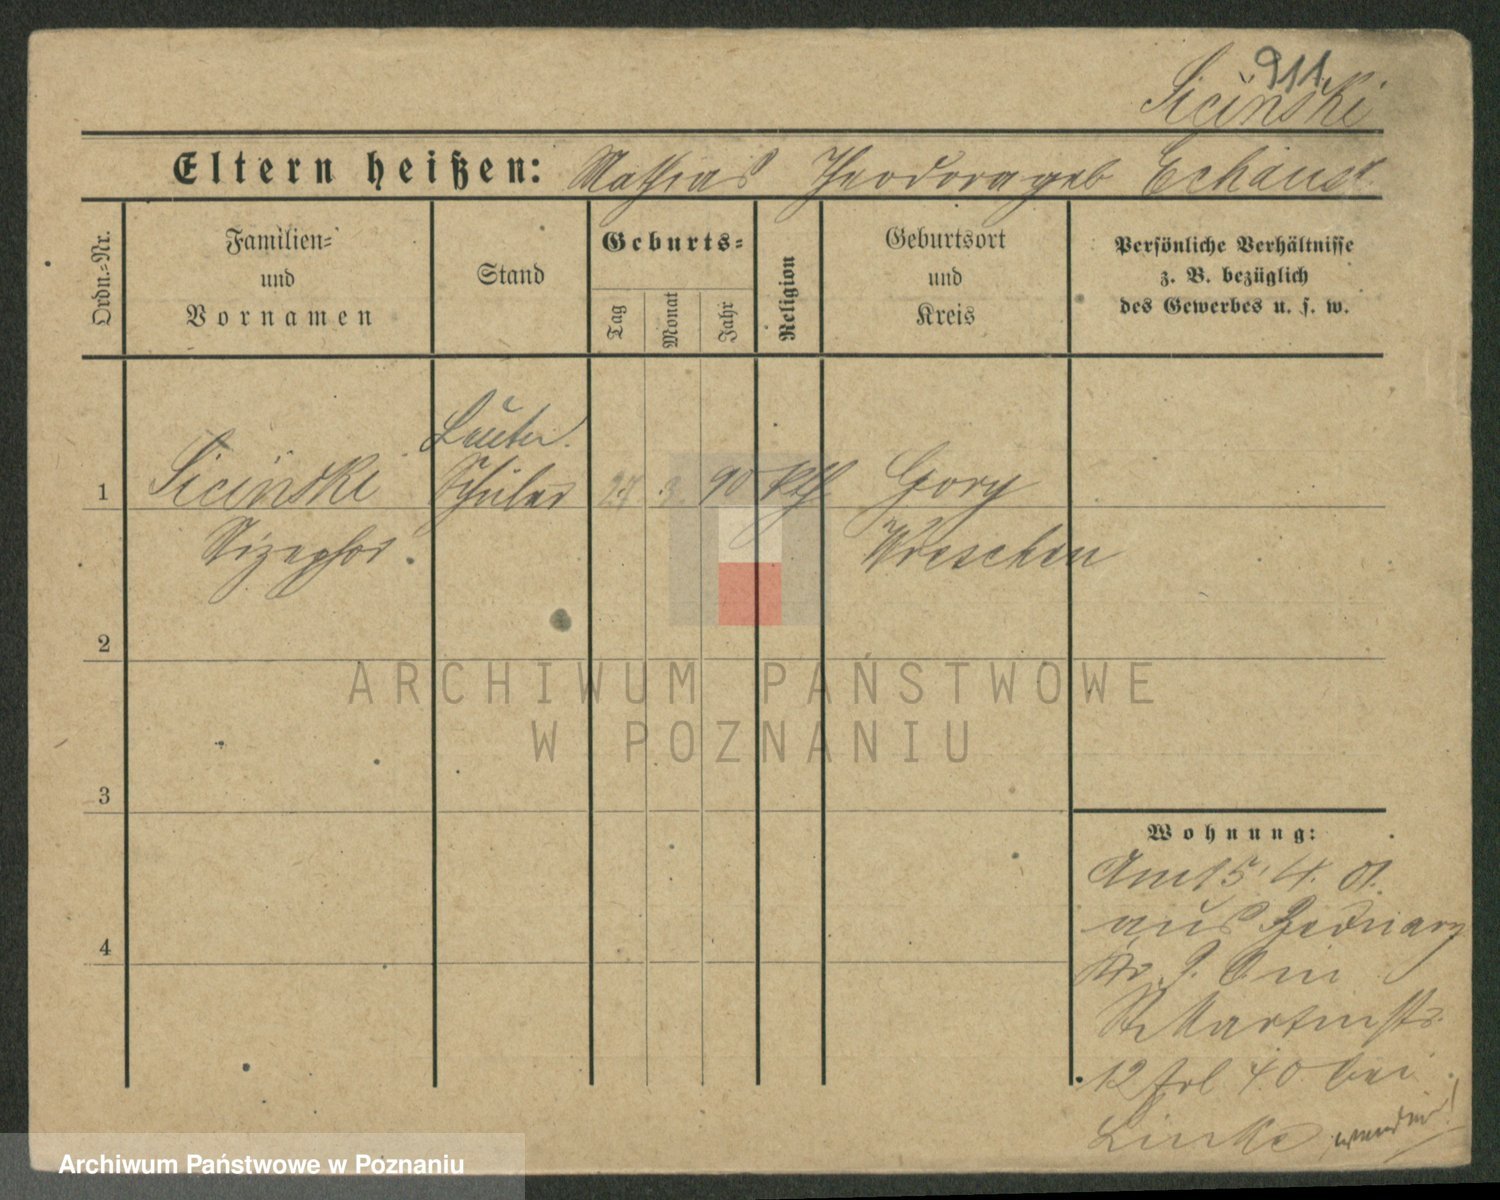 911.
Siciński
Eltern heißen: Mathias Theodora geb Echaust
Ordn.=Nr.
Familien=
und
Vornamen
Stand
Geburts=
Tag
Monat
Jahr
Religion
Geburtsort
und
Kreis
Persönliche Verhältnisse
z. B. bezüglich
des Gewerbes u. s. w.
1 Siciński Schüler 27 3. 90 kth Gory
Wreschen
2
3
4
Wohnung:
Am 15. 4. 01.
aus
St Martinstr.
12 40 bei
Linke wenden!
ARCHIWUM PAŃSTWOWE
W POZNANIU
Archiwum Państwowe w Poznaniu